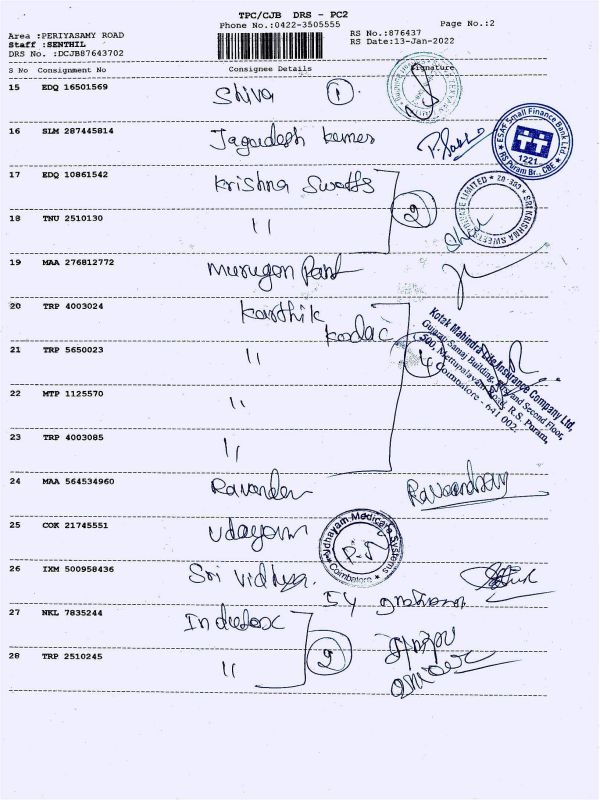 TPC/CJB DRS - PC2
Phone No.:0422-3505555
Page No.:2
Area :PERIYASAMY ROAD
Staff :SENTHIL
DRS No. :DCJB87643702
RS No.:876437
RS Date:13-Jan-2022
S No Consignment No Consignee Details Signature
15 EDQ 16501569 Shiva 1
16 SLM 287445814 Jagadesh kumar
ESAF Small Finance Bank Ltd.
1221
RS Puram Br., CBE
17 EDQ 10861542 Krishna Sweets
SRI KRISHNA SWEETS PRIVATE LIMITED
2
18 TNU 2510130 "
19 MAA 276812772 Murugan
20 TRP 4003024 Karthik
21 TRP 5650023 "
4
Kotak Mahindra Life Insurance Company Ltd,
Gujarat Samaj Building, First and Second Floor,
500, Mettupalayam Road, R.S. Puram,
Coimbatore - 641 002.
22 MTP 1125570 "
23 TRP 4003085 "
24 MAA 564534960 Ravander
25 COK 21745551 Udayam
Udhayam Medicare Systems
Coimbatore
26 IXM 500958436 Sri Vidhya.
27 NKL 7835244
2
28 TRP 2510245 "